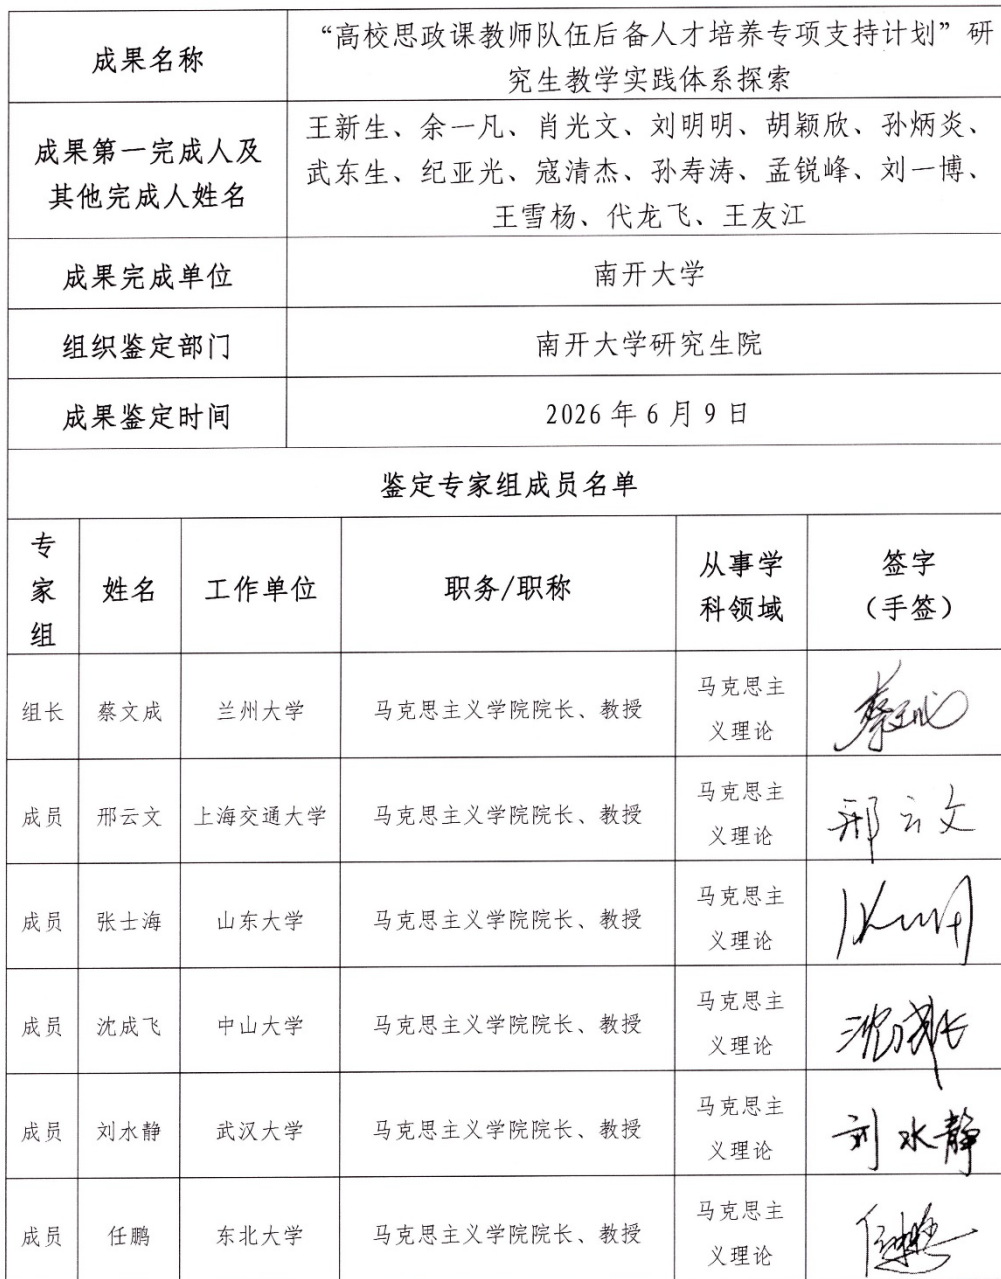 成果名称
“高校思政课教师队伍后备人才培养专项支持计划”研
究生教学实践体系探索
成果第一完成人及
其他完成人姓名
王新生、余一凡、肖光文、刘明明、胡颖欣、孙炳炎、
武东生、纪亚光、寇清杰、孙寿涛、孟锐峰、刘一博、
王雪杨、代龙飞、王友江
成果完成单位
南开大学
组织鉴定部门
南开大学研究生院
成果鉴定时间
2026年6月9日
鉴定专家组成员名单
专
家
组
姓名
工作单位
职务/职称
从事学
科领域
签字
（手签）
组长
蔡文成
兰州大学
马克思主义学院院长、教授
马克思主
义理论
蔡文成
成员
邢云文
上海交通大学
马克思主义学院院长、教授
马克思主
义理论
邢云文
成员
张士海
山东大学
马克思主义学院院长、教授
马克思主
义理论
成员
沈成飞
中山大学
马克思主义学院院长、教授
马克思主
义理论
沈成飞
成员
刘水静
武汉大学
马克思主义学院院长、教授
马克思主
义理论
刘水静
成员
任鹏
东北大学
马克思主义学院院长、教授
马克思主
义理论